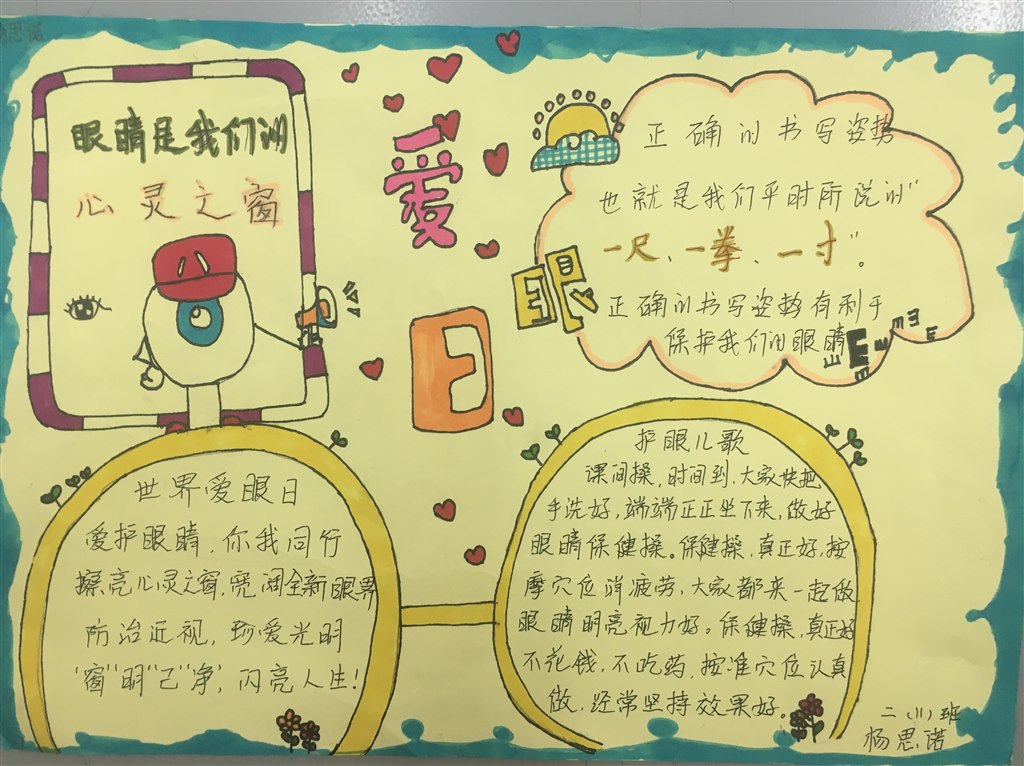 杨思诺
眼睛是我们的
心灵之窗
爱
眼
日
正确的书写姿势
也就是我们平时所说的"
一尺、一拳、一寸"。
正确的书写姿势有利于
保护我们的眼睛
世界爱眼日
爱护眼睛,你我同行
擦亮心灵之窗,宽阔全新眼界
防治近视,珍爱光明
"窗"明"己"净,闪亮人生!
护眼儿歌
课间操,时间到,大家快把
手洗好,端端正正坐下来,做好
眼睛保健操。保健操,真正好,按
摩穴位消疲劳,大家都来一起做
眼睛明亮视力好。保健操,真正好
不花钱,不吃药,按准穴位认真
做,经常坚持效果好。
二(11)班
杨思诺